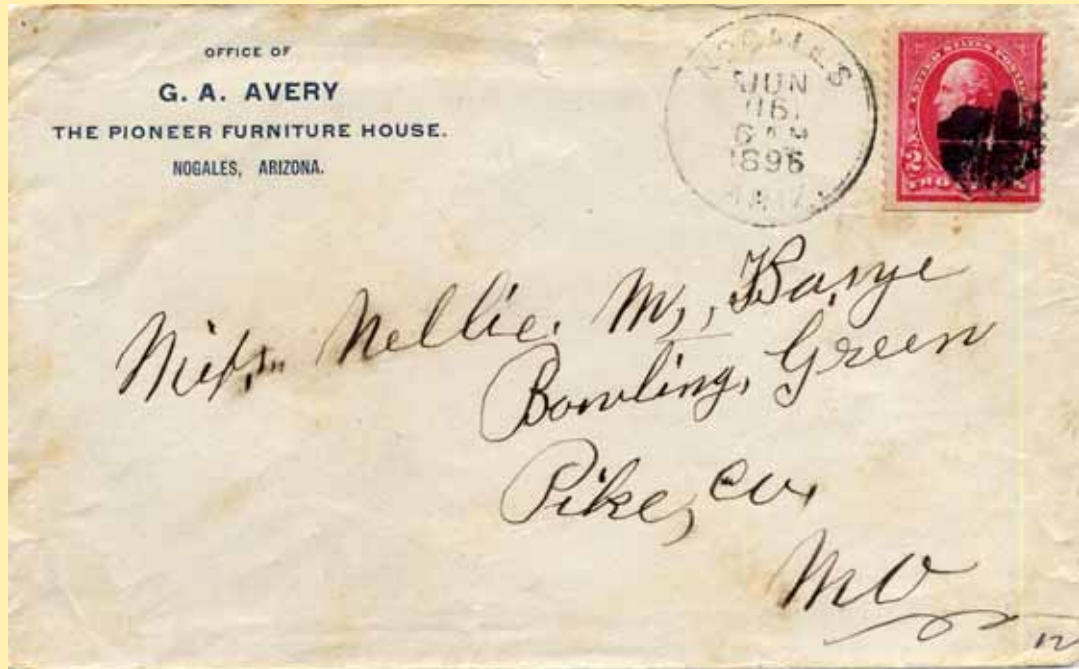 OFFICE OF
G. A. AVERY
THE PIONEER FURNITURE HOUSE.
NOGALES, ARIZONA.
NOGALES
JUN
16
6 AM
1896
ARIZ.
UNITED STATES
2
TWO
Miss Nellie. M,
Bowling, Green
Pike, co,
MO
12